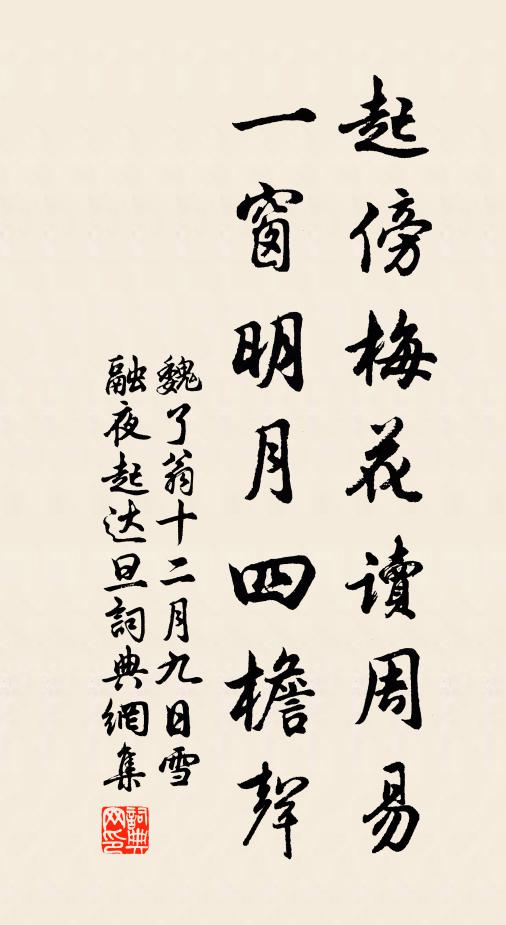 起傍梅花讀周易
一窗明月四檐聲
魏了翁十二月九日雪
融夜起达旦詞典網集
詞典
网印